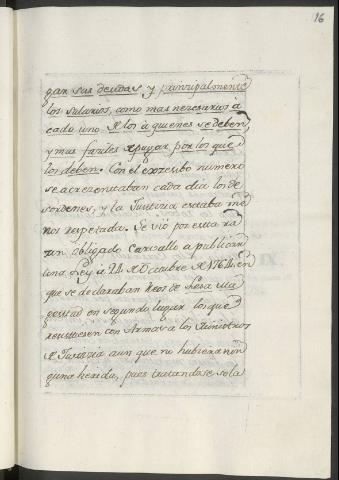 16
gar sus deudas y principalmente
los salarios, como mas necesarios à
cada uno de los à quienes se deben,
y mas faciles de pagar por los que
los deben. Con el excesibo numero
se acrecentaban cada dia los de
sordenes, y la Justicia estaba me
nos respetada. Se vió por esta ra
zon obligado Carvallo a publicar
una Ley a 24 de Octubre de 1764. en
que se declaraban Reos de Lesa Ma
gestad en segundo lugar los que
resistiesen con Armas a los Ministros
de Justicia aun que no hubiera nin
guna herida, pues tratandose sola